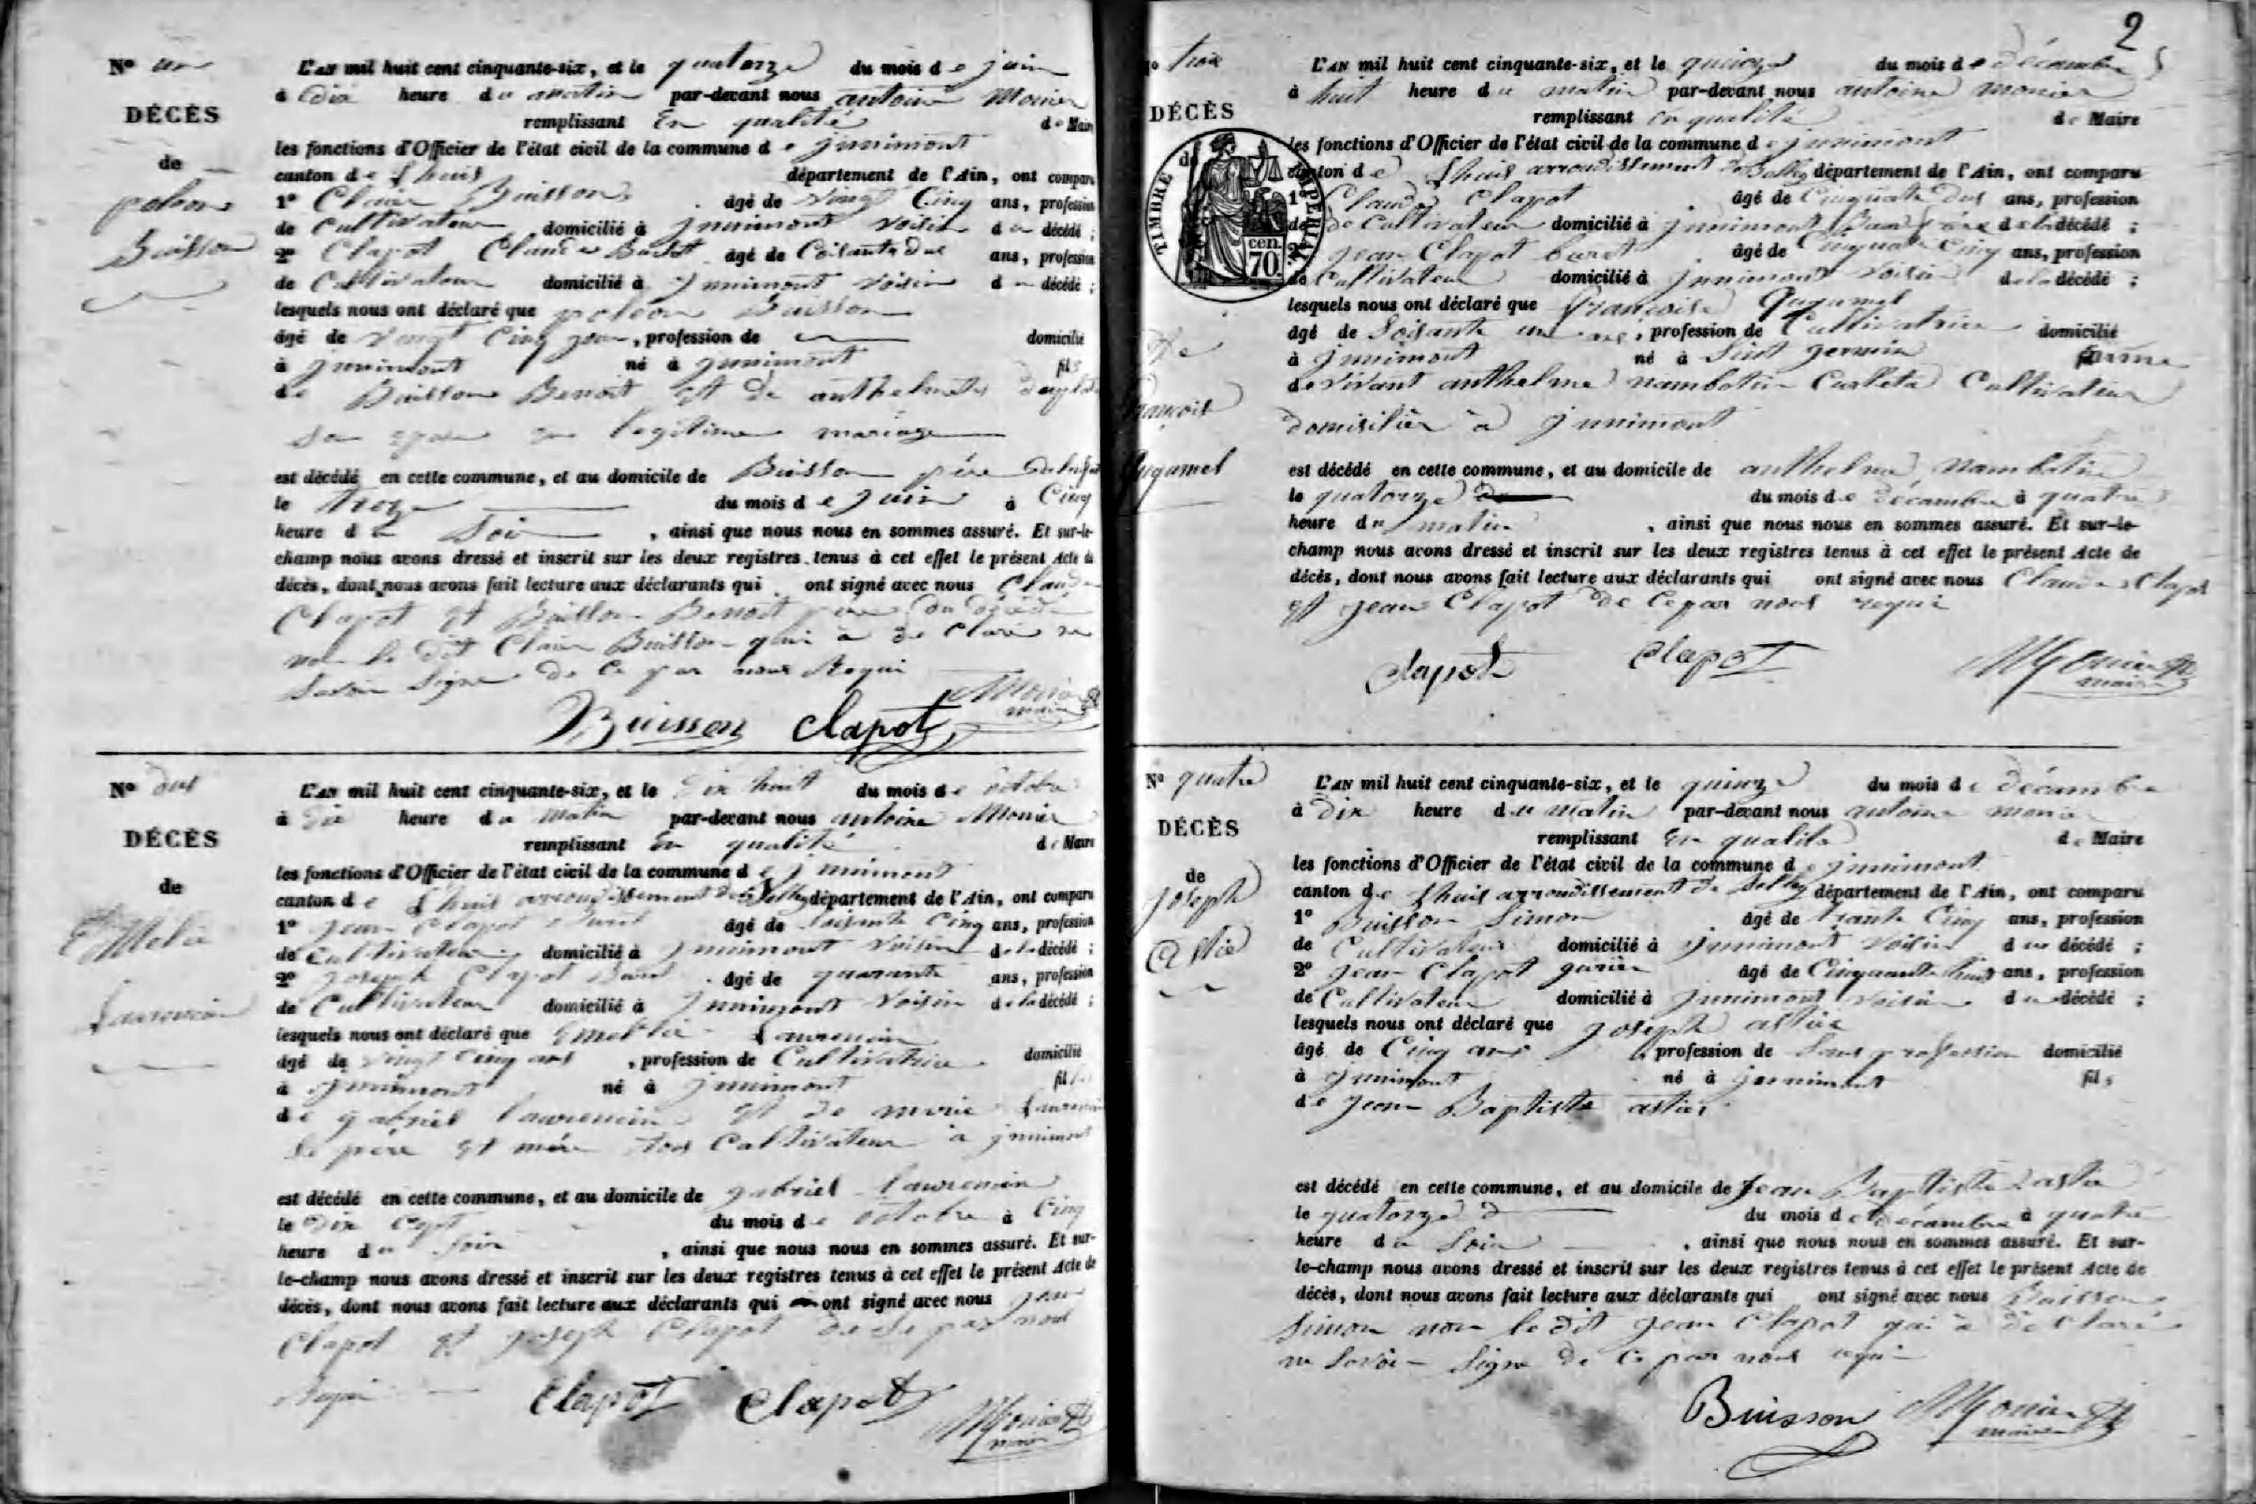 N° un
DÉCÈS
de
poléon
Buisson
L'AN mil huit cent cinquante-six, et le quatorze du mois de juin
à dix heure du matin par-devant nous antoine Monier
remplissant En qualité de Maire
les fonctions d'Officier de l'état civil de la commune de jnnimont
canton de Lhuis département de l'Ain, ont comparu
1° Buisson âgé de vingt Cinq ans, profession
de Cultivateur domicilié à jnnimont voisin du décédé ;
2° Clapot Claude âgé de ans, profession
de Cultivateur domicilié à jnnimont voisin du décédé ;
lesquels nous ont déclaré que poléon Buisson
âgé de vingt Cinq jour, profession de domicilié
à jnnimont né à jnnimont fils
de Buisson Benoit Et de anthelmette
légitime mariage
est décédé en cette commune, et au domicile de Buisson père
le treize du mois de juin à Cinq
heure du Soir, ainsi que nous nous en sommes assuré. Et sur-le-
champ nous avons dressé et inscrit sur les deux registres tenus à cet effet le présent Acte de
décès, dont nous avons fait lecture aux déclarants qui ont signé avec nous Claude
Clapot Et Buisson Benoit père du décédé
non le dit Buisson qui à de Claré ne
Savoir Signe de Ce par nous Requi
Monier
maire
Buisson Clapot
N° dus
DÉCÈS
de
EMelie
Laurencin
L'AN mil huit cent cinquante-six, et le Dix huit du mois de octobre
à Dix heure du Matin par-devant nous antoine Monier
remplissant En qualité de Maire
les fonctions d'Officier de l'état civil de la commune de jnnimont
canton de Lhuis arrondissement de Belley département de l'Ain, ont comparu
1° jean Clapot âgé de soisante Cinq ans, profession
de Cultivateur domicilié à jnnimont voisin de la décédé ;
2° joseph Clapot âgé de quarante ans, profession
de Cultivateur domicilié à jnnimont voisin de la décédé ;
lesquels nous ont déclaré que Emellie Laurencin
âgé de vingt Cinq ans, profession de Cultivatrice domicilié
à jnnimont né à jnnimont fille
de gabriel laurencin Et de marie
le père Et mère tous Cultivateur à jnnimont
est décédé en cette commune, et au domicile de gabriel laurencin
le Dix Cept du mois de octobre à Cinq
heure du Soir, ainsi que nous nous en sommes assuré. Et sur-
le-champ nous avons dressé et inscrit sur les deux registres tenus à cet effet le présent Acte de
décès, dont nous avons fait lecture aux déclarants qui ont signé avec nous jean
Clapot Et joseph Clapot de Se par nous
Requi
Clapot Clapot Monier
maire
2
N° trois
DÉCÈS
TIMBRE IMPÉRIAL
cen.
70.
De
françoise
Gugumel
L'AN mil huit cent cinquante-six, et le quinze du mois de décembre
à huit heure du matin par-devant nous antoine monier
remplissant En qualité de Maire
les fonctions d'Officier de l'état civil de la commune de jnnimont
canton de Lhuis arrondissement de Belley département de l'Ain, ont comparu
1° Claude Clapot âgé de Cinquante dus ans, profession
de Cultivateur domicilié à jnnimont de la décédé ;
2° jean Clapot âgé de Cinquante Cinq ans, profession
de Cultivateur domicilié à jnnimont voisin de la décédé ;
lesquels nous ont déclaré que françoise Gugumel
âgé de Soisante un ans, profession de Cultivatrice domicilié
à jnnimont né à Saint germain famme
de vivant anthelme nambotin Cultivateur
domisilier à jnnimont
est décédé en cette commune, et au domicile de anthelme nambotin
le quatorze du mois de décembre à quatre
heure du matin, ainsi que nous nous en sommes assuré. Et sur-le-
champ nous avons dressé et inscrit sur les deux registres tenus à cet effet le présent Acte de
décès, dont nous avons fait lecture aux déclarants qui ont signé avec nous Claude Clapot
Et jean Clapot de Ce par nous requi
Clapot Clapot Monier
maire
N° quatre
DÉCÈS
de
joseph
Astie
L'AN mil huit cent cinquante-six, et le quinze du mois de décembre
à Dix heure du matin par-devant nous antoine monier
remplissant En qualité de Maire
les fonctions d'Officier de l'état civil de la commune de jnnimont
canton de Lhuis arrondissement de Belley département de l'Ain, ont comparu
1° Buisson Simon âgé de trante Cinq ans, profession
de Cultivateur domicilié à jnnimont voisin du décédé ;
2° jean Clapot âgé de Cinquante huit ans, profession
de Cultivateur domicilié à jnnimont voisin du décédé ;
lesquels nous ont déclaré que joseph astier
âgé de Cinq ans, profession de Sans profession domicilié
à jnnimont né à jnnimont fils
de jean Baptiste astier
est décédé en cette commune, et au domicile de jean Baptiste astie
le quatorze du mois de décembre à quatre
heure du Soir, ainsi que nous nous en sommes assuré. Et sur-
le-champ nous avons dressé et inscrit sur les deux registres tenus à cet effet le présent Acte de
décès, dont nous avons fait lecture aux déclarants qui ont signé avec nous Buisson
Simon non le dit jean Clapot qui à de Claré
ne Savoir Signe de Ce par nous requi
Buisson Monier
maire